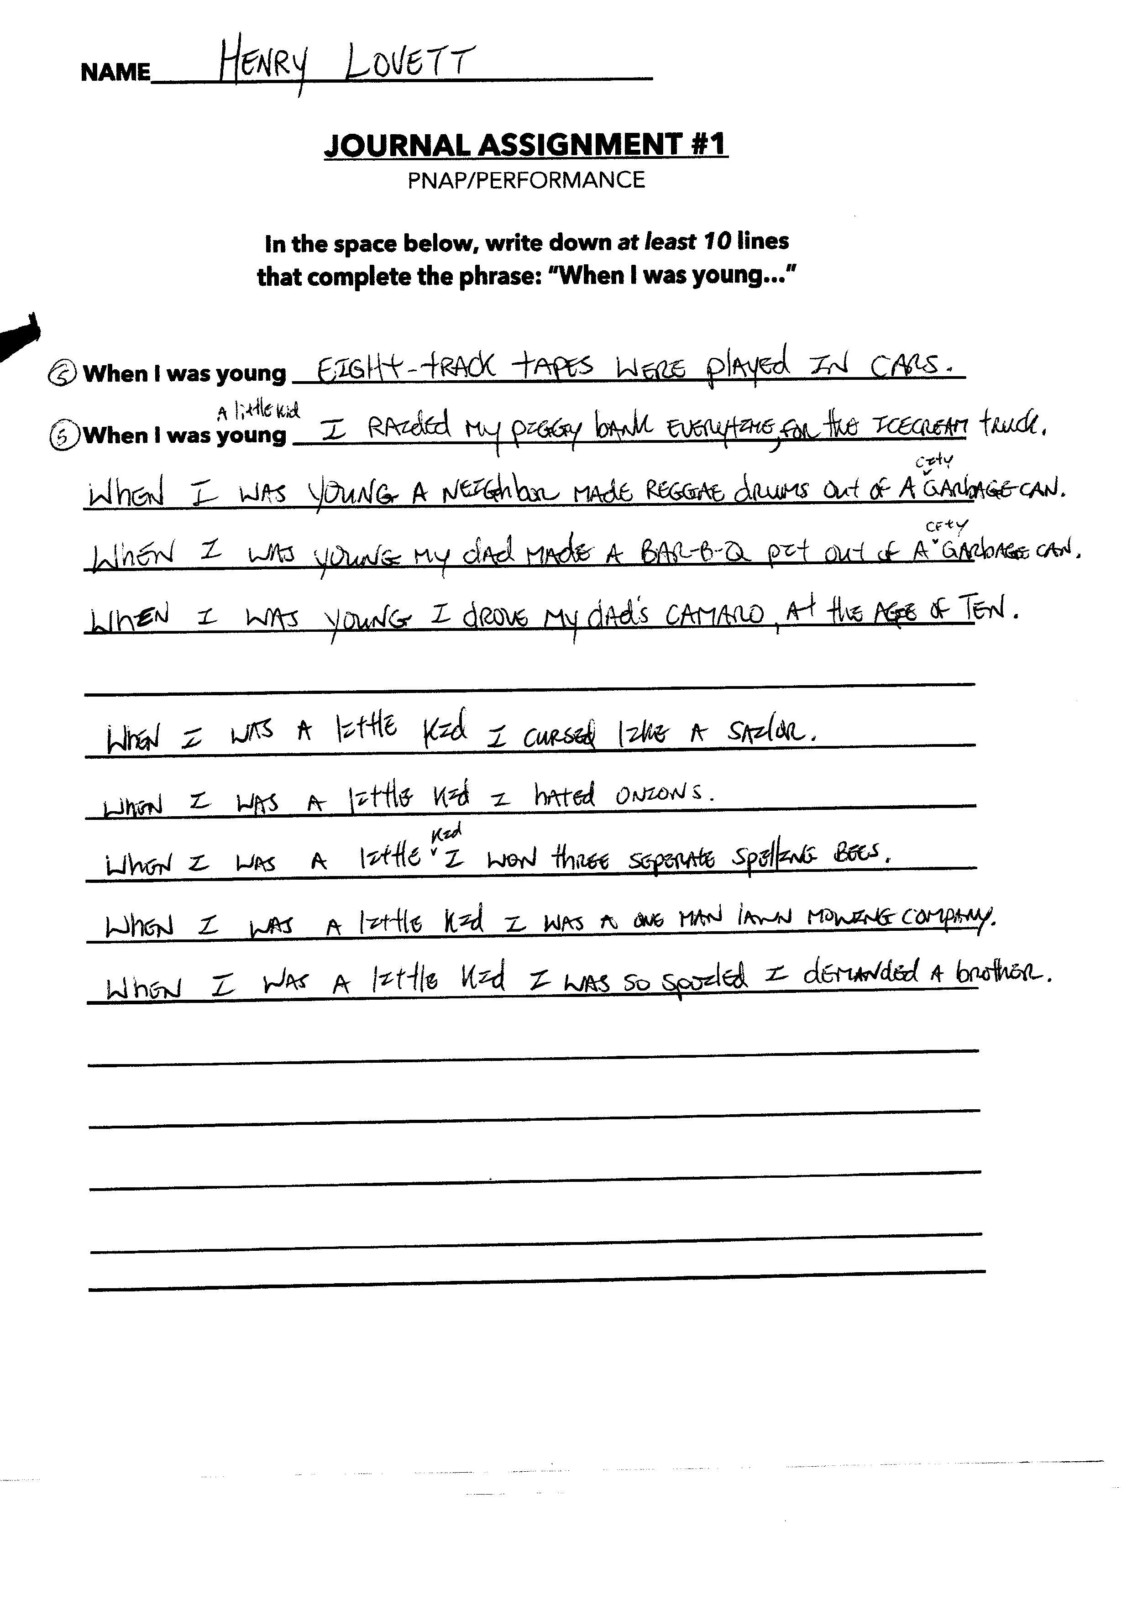 NAME HENRY LOVETT
JOURNAL ASSIGNMENT #1
PNAP/PERFORMANCE
In the space below, write down at least 10 lines
that complete the phrase: "When I was young..."
⑤ When I was young EIGHT-TRACK TAPES WERE PLAYED IN CARS.
A little kid
⑤ When I was young I RAIDED MY PIGGY BANK EVERYTIME, FOR THE ICECREAM TRUCK.
City
WHEN I WAS YOUNG A NEIGHBOR MADE REGGAE DRUMS OUT OF A GARBAGE CAN.
City
WHEN I WAS YOUNG MY DAD MADE A BAR-B-Q PIT OUT OF A GARBAGE CAN.
WHEN I WAS YOUNG I DROVE MY DAD'S CAMARO, AT THE AGE OF TEN.
WHEN I WAS A LITTLE KID I CURSED LIKE A SAILOR.
WHEN I WAS A LITTLE KID I HATED ONIONS.
KID
WHEN I WAS A LITTLE I WON THREE SEPERATE SPELLING BEES.
WHEN I WAS A LITTLE KID I WAS A ONE MAN LAWN MOWING COMPANY.
WHEN I WAS A LITTLE KID I WAS SO SPOILED I DEMANDED A BROTHER.